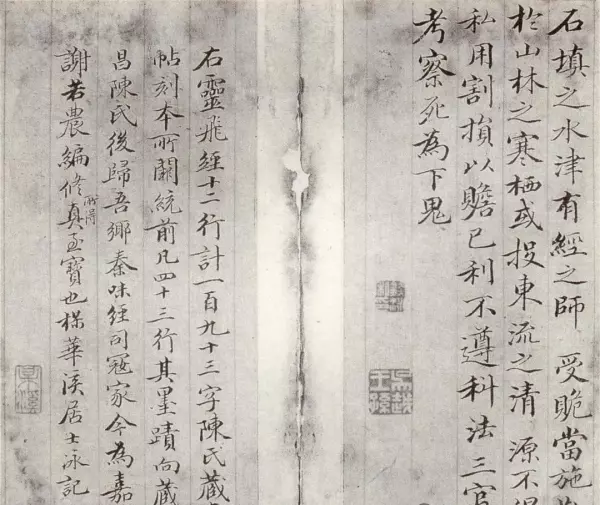 石填之水津有經之師 受貺當施
於山林之寒栖或投東流之清 源不得
私用割損以贍已利不遵科法三官
考察死為下鬼
吳越王孫
右靈飛經十二行計一百九十三字陳氏藏
帖刻本所闕統前凡四十三行其墨蹟向藏
昌陳氏後歸吾鄉秦味經司寇家今為嘉
謝若農編修所得真至寶也楳華溪居士泳記